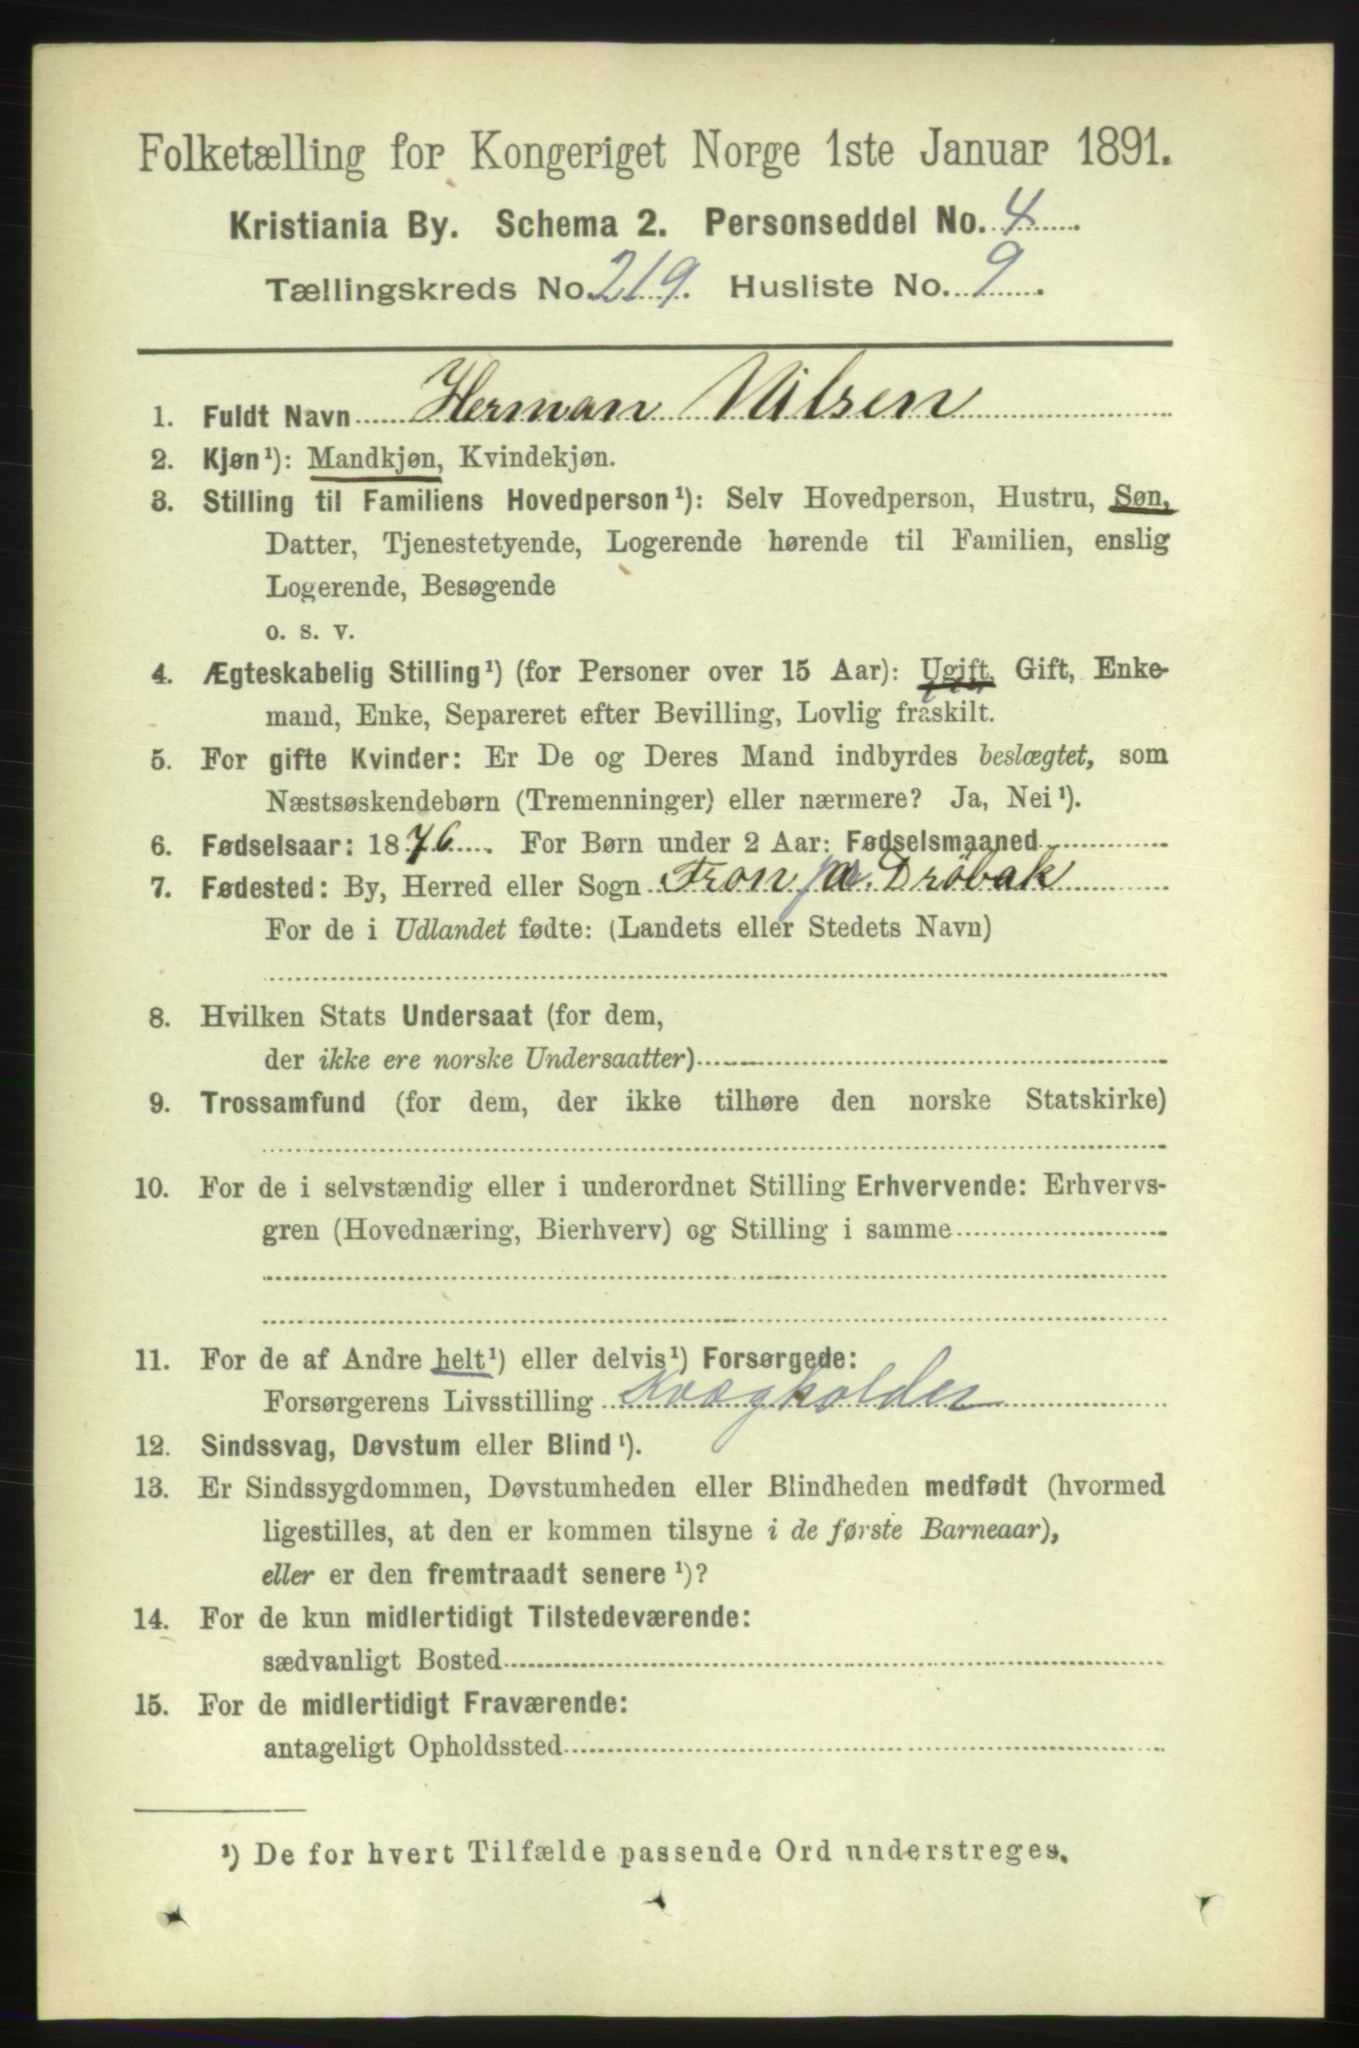 Folketælling for Kongeriget Norge 1ste Januar 1891.
Kristiania By. Schema 2. Personseddel No. 4.
Tællingskreds No. 219. Husliste No. 9.
1. Fuldt Navn Herman Nilsen
2. Kjøn¹): Mandkjøn, Kvindekjøn.
3. Stilling til Familiens Hovedperson¹): Selv Hovedperson, Hustru, Søn,
Datter, Tjenestetyende, Logerende hørende til Familien, enslig
Logerende, Besøgende
o. s. v.
4. Ægteskabelig Stilling¹) (for Personer over 15 Aar): Ugift, Gift, Enke-
mand, Enke, Separeret efter Bevilling, Lovlig fraskilt.
5. For gifte Kvinder: Er De og Deres Mand indbyrdes beslægtet, som
Næstsøskendebørn (Tremenninger) eller nærmere? Ja, Nei¹).
6. Fødselsaar: 1876. For Børn under 2 Aar: Fødselsmaaned
7. Fødested: By, Herred eller Sogn Fron Drøbak
For de i Udlandet fødte: (Landets eller Stedets Navn)
8. Hvilken Stats Undersaat (for dem,
der ikke ere norske Undersaatter)
9. Trossamfund (for dem, der ikke tilhøre den norske Statskirke)
10. For de i selvstændig eller i underordnet Stilling Erhvervende: Erhvervs-
gren (Hovednæring, Bierhverv) og Stilling i samme
11. For de af Andre helt¹) eller delvis¹) Forsørgede:
Forsørgerens Livsstilling Kvægholder
12. Sindssvag, Døvstum eller Blind¹).
13. Er Sindssygdommen, Døvstumheden eller Blindheden medfødt (hvormed
ligestilles, at den er kommen tilsyne i de første Barneaar),
eller er den fremtraadt senere¹)?
14. For de kun midlertidigt Tilstedeværende:
sædvanligt Bosted
15. For de midlertidigt Fraværende:
antageligt Opholdssted
¹) De for hvert Tilfælde passende Ord understreges.